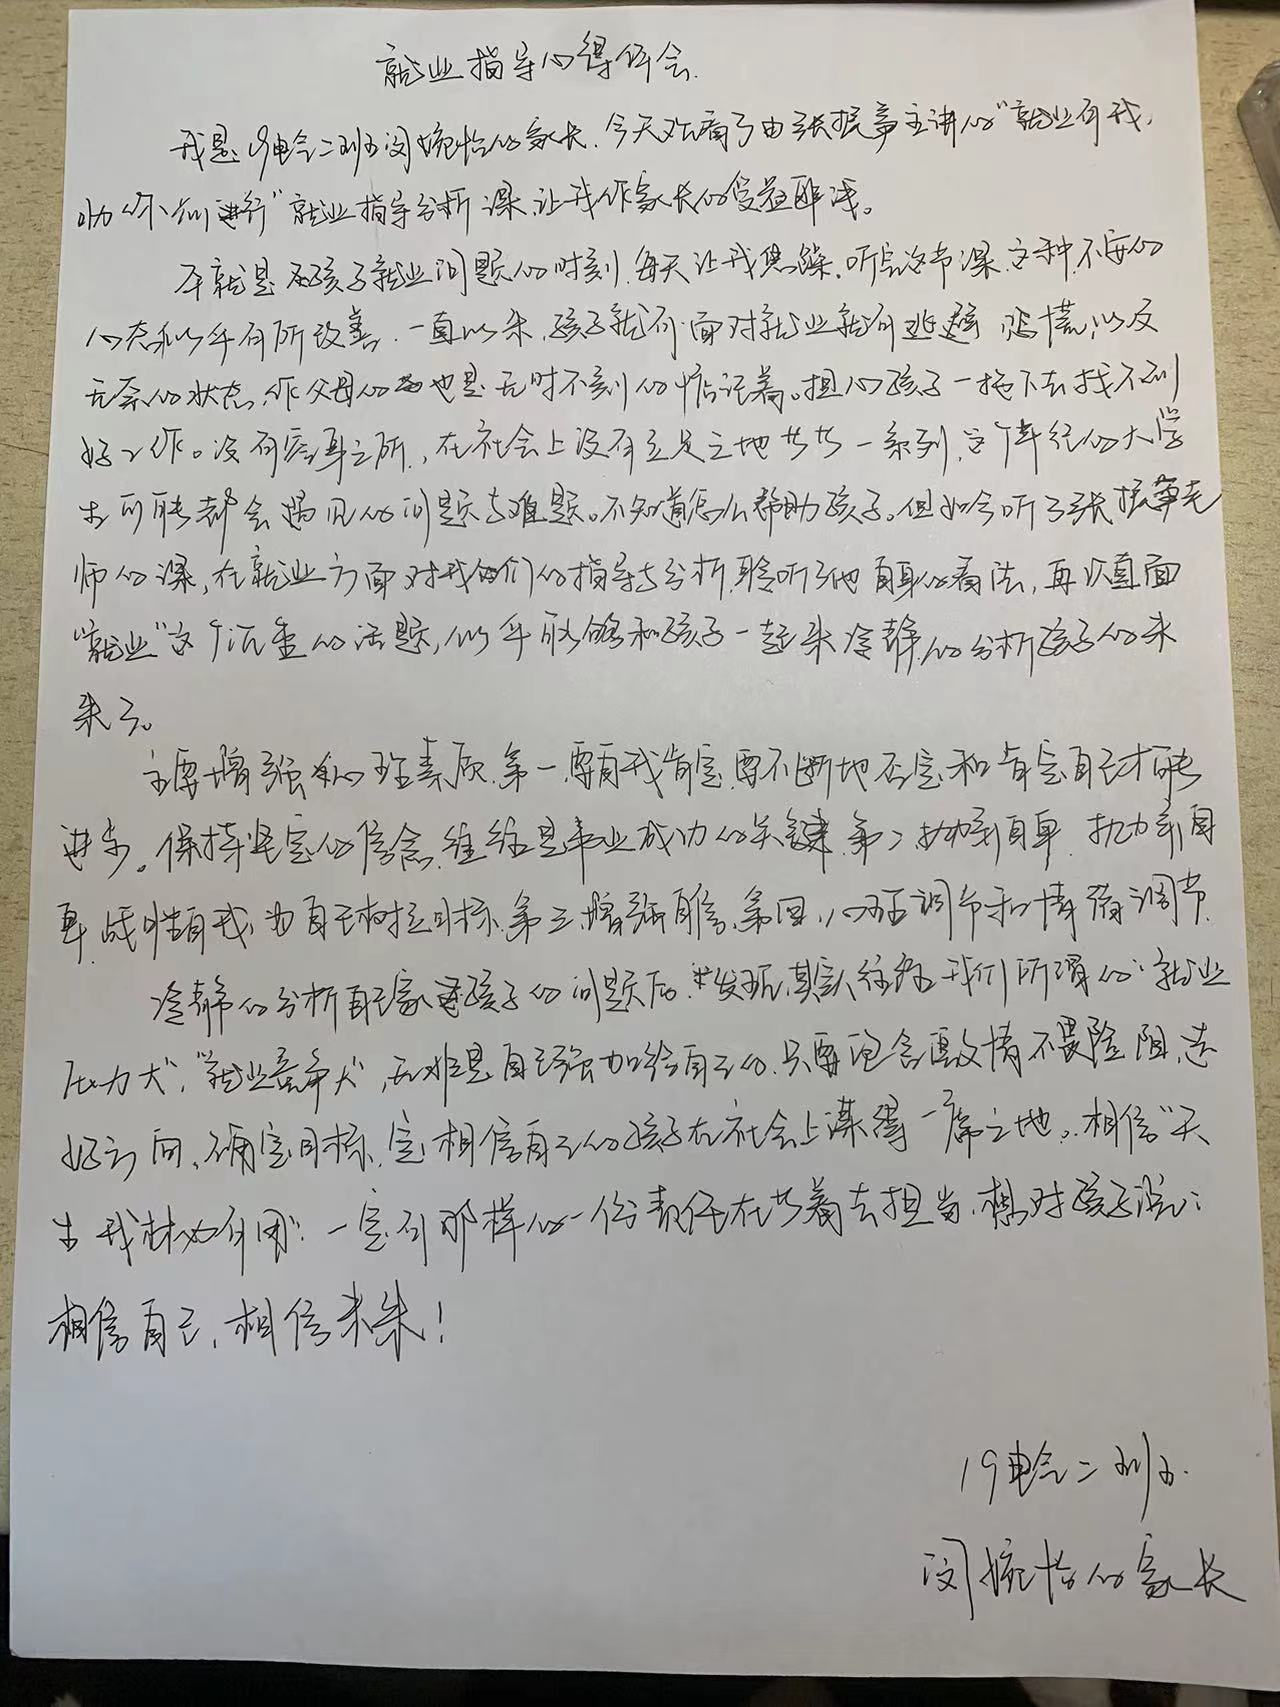 就业指导心得体会.
我是19电会二班闵婉怡的家长.今天观看了由张振争主讲的“就业有我,
助你前进行”就业指导分析课让我作家长的受益匪浅。
本就是在孩子就业问题的时刻,每天让我焦躁.听完这节课.这种不安的
心态似乎有所改善.一直以来,孩子就有面对就业就有逃避,恐慌,以及
无奈的状态.作父母的也是无时不刻的惦记着。担心孩子一拖下去找不到
好工作。没有容身之所,在社会上没有立足之地 一系列,这个年纪的大学
生可能都会遇见的问题与难题。不知道怎么帮助孩子。但如今听了张振争老
师的课,在就业方面对我们的指导与分析,聆听了他自身的看法,再次直面
“就业”这个沉重的话题,似乎能够和孩子一起来冷静的分析孩子的未
来了。
主要增强心理素质.第一,要自我肯定,要不断地否定和肯定自己才能
进步。保持坚定的信念,往往是事业成功的关键.第二,抛弃自卑.抛弃自
卑,战胜自我,为自己树立目标.第三,增强自信.第四,心理调节和情绪调节.
冷静的分析自己家孩子的问题后.发现,其实往往我们所谓的“就业
压力大”,“就业竞争大”,无非是自己强加给自己的.只要饱含激情不畏险阻,选
好方向,确定目标,定相信自己的孩子在社会上谋得一席之地。相信“天
生我材必有用”.一定有那样的一份责任在等着去担当.想对孩子说:
相信自己,相信未来!
19电会二班.
闵婉怡的家长